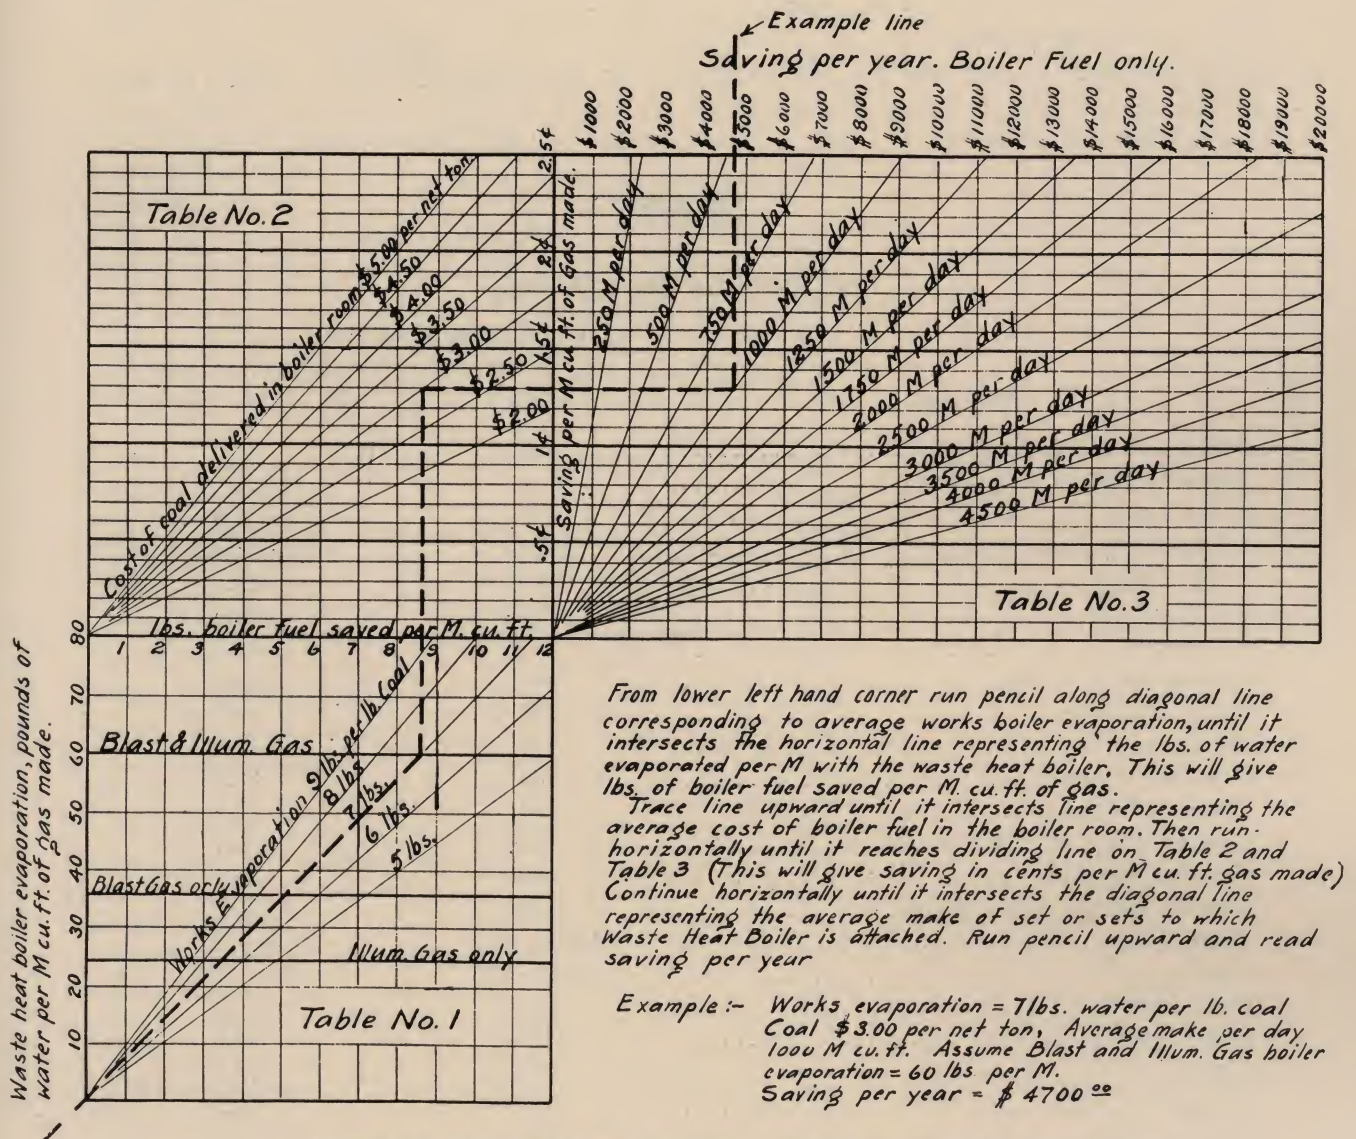 Example line
Saving per year. Boiler Fuel only.
$1000
$2000
$3000
$4000
$5000
$6000
$7000
$8000
$9000
$10000
$11000
$12000
$13000
$14000
$15000
$16000
$17000
$18000
$19000
$20000
Table No. 2
Cost of coal delivered in boiler room $5.00 per net ton
$4.50
$4.00
$3.50
$3.00
$2.50
$2.00
2.5¢
2¢
1.5¢
1¢
.5¢
Saving per M cu. ft. of Gas made.
250 M per day
500 M per day
750 M per day
1000 M per day
1250 M per day
1500 M per day
1750 M per day
2000 M per day
2500 M per day
3000 M per day
3500 M per day
4000 M per day
4500 M per day
Table No. 3
lbs. boiler fuel saved per M. cu. ft.
1 2 3 4 5 6 7 8 9 10 11 12
80
70
60
50
40
30
20
10
Waste heat boiler evaporation, pounds of
water per M cu. ft. of gas made.
Blast & Illum. Gas
Blast Gas only
Illum. Gas only
Works Evaporation 9 lbs. per lb. Coal
8 lbs
7 lbs.
6 lbs.
5 lbs.
Table No. 1
From lower left hand corner run pencil along diagonal line
corresponding to average works boiler evaporation, until it
intersects the horizontal line representing the lbs. of water
evaporated per M with the waste heat boiler. This will give
lbs. of boiler fuel saved per M. cu. ft. of gas.
Trace line upward until it intersects line representing the
average cost of boiler fuel in the boiler room. Then run
horizontally until it reaches dividing line on Table 2 and
Table 3 (This will give saving in cents per M cu. ft. gas made)
Continue horizontally until it intersects the diagonal line
representing the average make of set or sets to which
Waste Heat Boiler is attached. Run pencil upward and read
saving per year
Example:- Works evaporation = 7 lbs. water per lb. coal
Coal $3.00 per net ton, Average make per day
1000 M cu. ft. Assume Blast and Illum. Gas boiler
evaporation = 60 lbs per M.
Saving per year = $ 4700 00